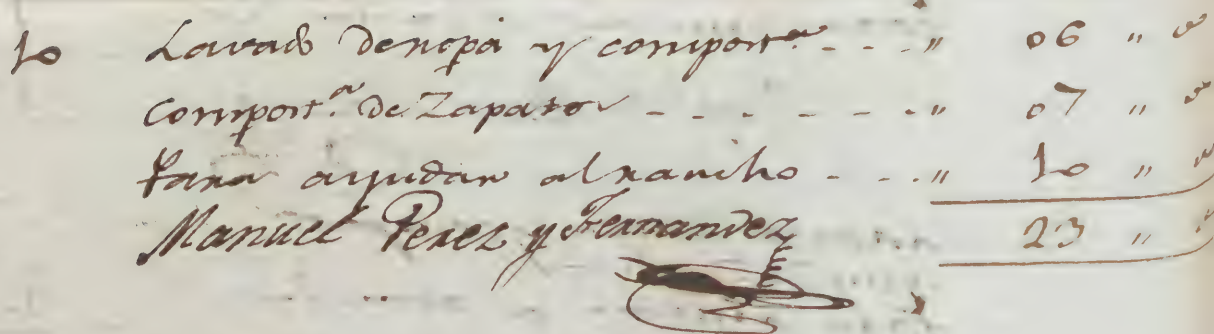 10 Lavado deropa y comport.ª - - - " 06 " "
Comport.ª de Zapatos - - - - - - - " 07 " "
Para ayudar alrancho - - - " 10 " "
Manuel Perez y Fernandez 23 " "